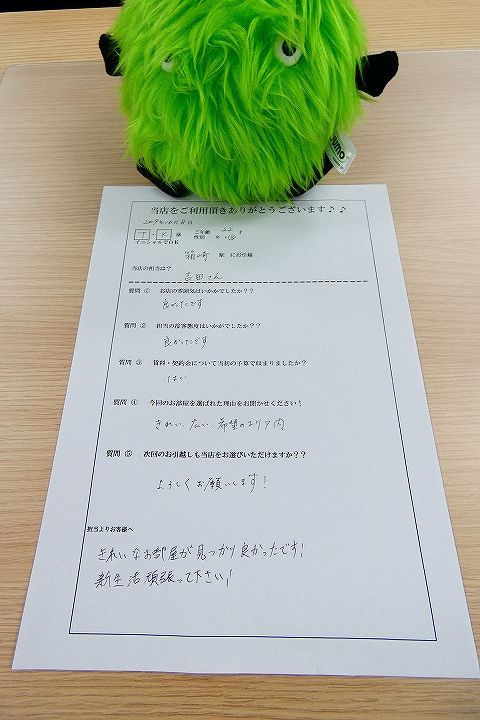 suumo
当店をご利用頂きありがとうございます♪♪
T . K 様 ご年齢 22 才
イニシャルでOK 性別 男 ・ 女
箱崎 駅 にお引越
当店の担当は?
吉田さん
質問 ① お店の雰囲気はいかがでしたか??
良かったです
質問 ② 担当の接客態度はいかがでしたか??
良かったです
質問 ③ 賃料・契約金について当初の予算で収まりましたか?
はい
質問 ④ 今回のお部屋を選ばれた理由をお聞かせください!
きれい、広い、希望のエリア内
質問 ⑤ 次回のお引越しも当店をお選びいただけますか??
よろしくお願いします!
担当よりお客様へ
きれいなお部屋が見つかり良かったです!
新生活頑張って下さい!